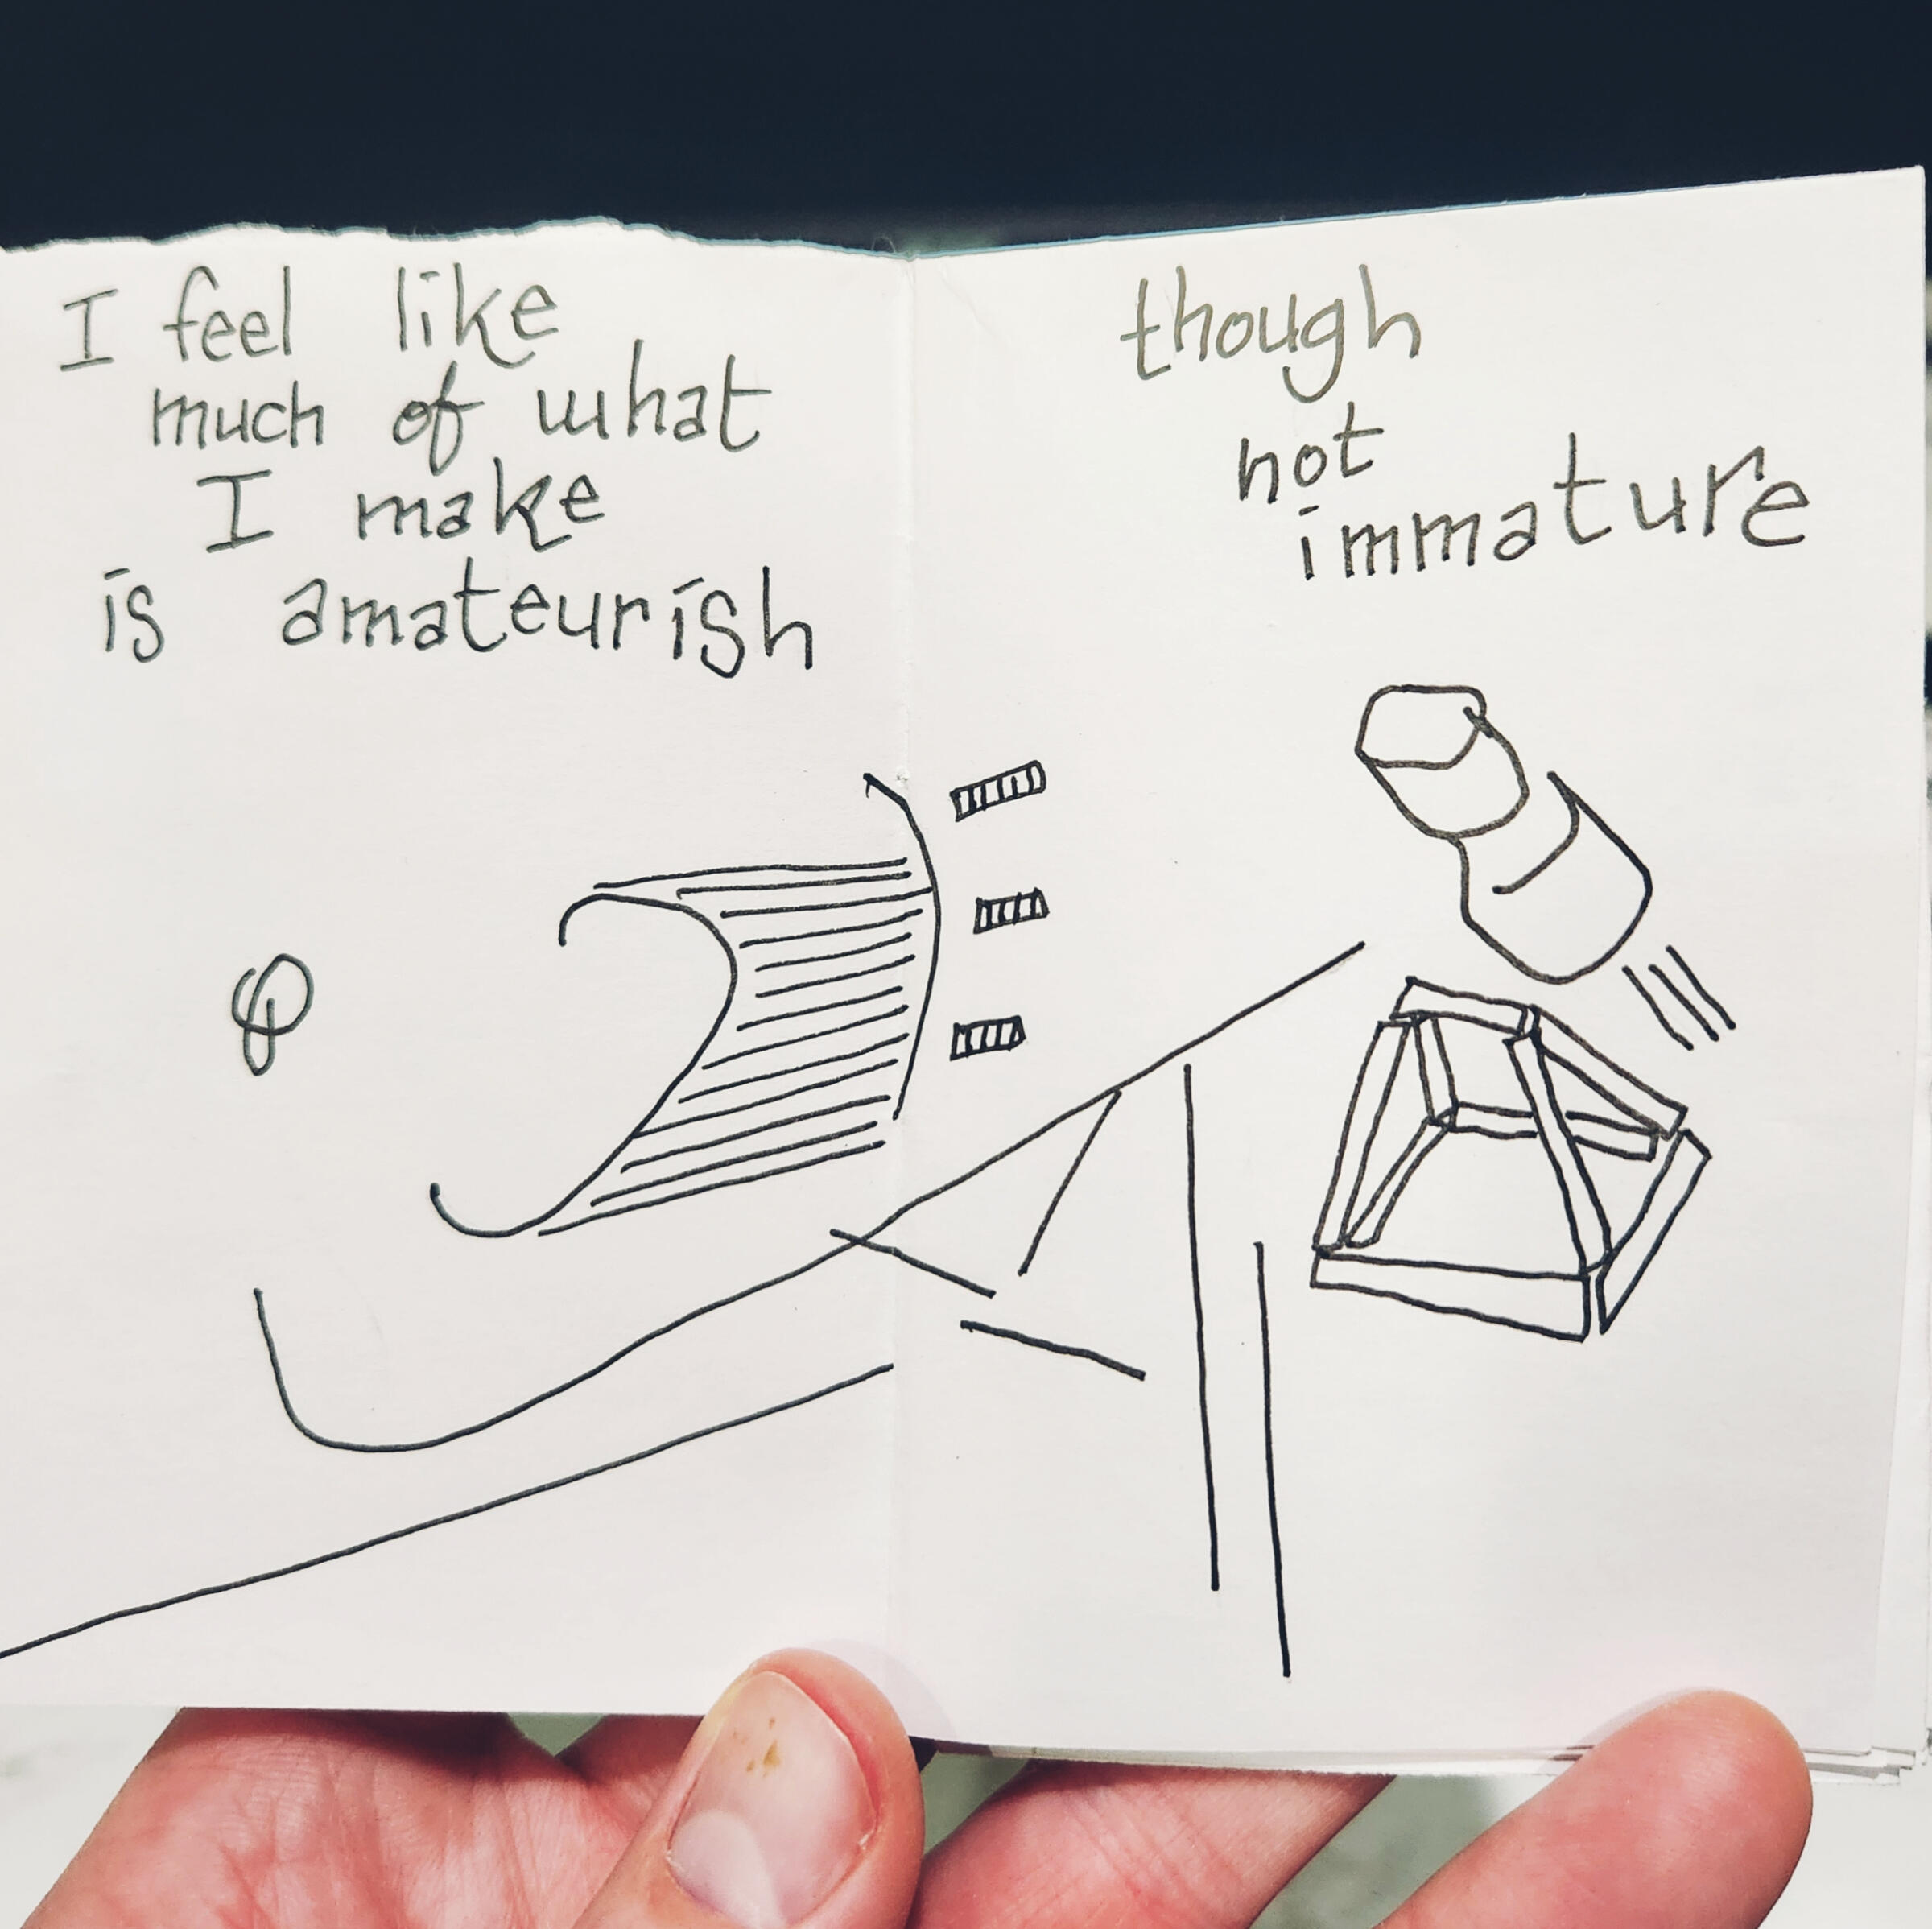 I feel like
much of what
I make
is amateurish
though
not
immature